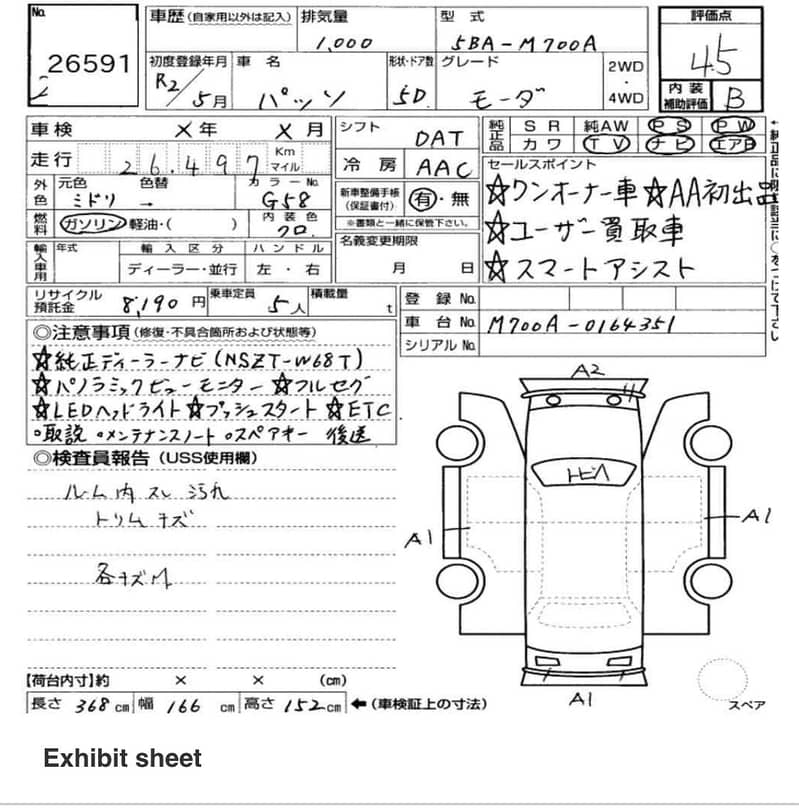 No. 26591
車歴(自家用以外は記入) 排気量 1,000 型式 5BA-M700A 評価点 4.5
初度登録年月 R2/5月 車名 パッソ 形状・ドア数 5D グレード モーダ 2WD・4WD 内装補助評価 B
車検 ×年 ×月 シフト DAT 純正品 SR 純AW PS PW
カワ TV ナビ エアB
走行 26,497 Km マイル 冷房 AAC セールスポイント
外色 元色 ミドリ 色替 → カラーNo. G58 新車整備手帳(保証書付) 有・無 ※書類と一緒に保管下さい。
☆ワンオーナー車☆AA初出品
☆ユーザー買取車
☆スマートアシスト
燃料 ガソリン 軽油・( ) 内装色 クロ 名義変更期限 月 日
輸入車用 年式 輸入区分 ディーラー・並行 ハンドル 左・右
リサイクル預託金 8,190円 乗車定員 5人 積載量 t
登録No.
車台No. M700A-0164351
シリアルNo.
◎注意事項(修復・不具合箇所および状態等)
☆純正ディーラーナビ(NSZT-W68T)
☆パノラミックビューモニター☆フルセグ
☆LEDヘッドライト☆プッシュスタート☆ETC
◦取説 ◦メンテナンスノート ◦スペアキー 後送
◎検査員報告(USS使用欄)
ルーム内 スレ 汚れ
トリムキズ
各キズ
A2
トビハ
A1
A1
A1
スペア
【荷台内寸】約 × × (cm)
長さ 368cm 幅 166cm 高さ 152cm ←(車検証上の寸法)
Exhibit sheet